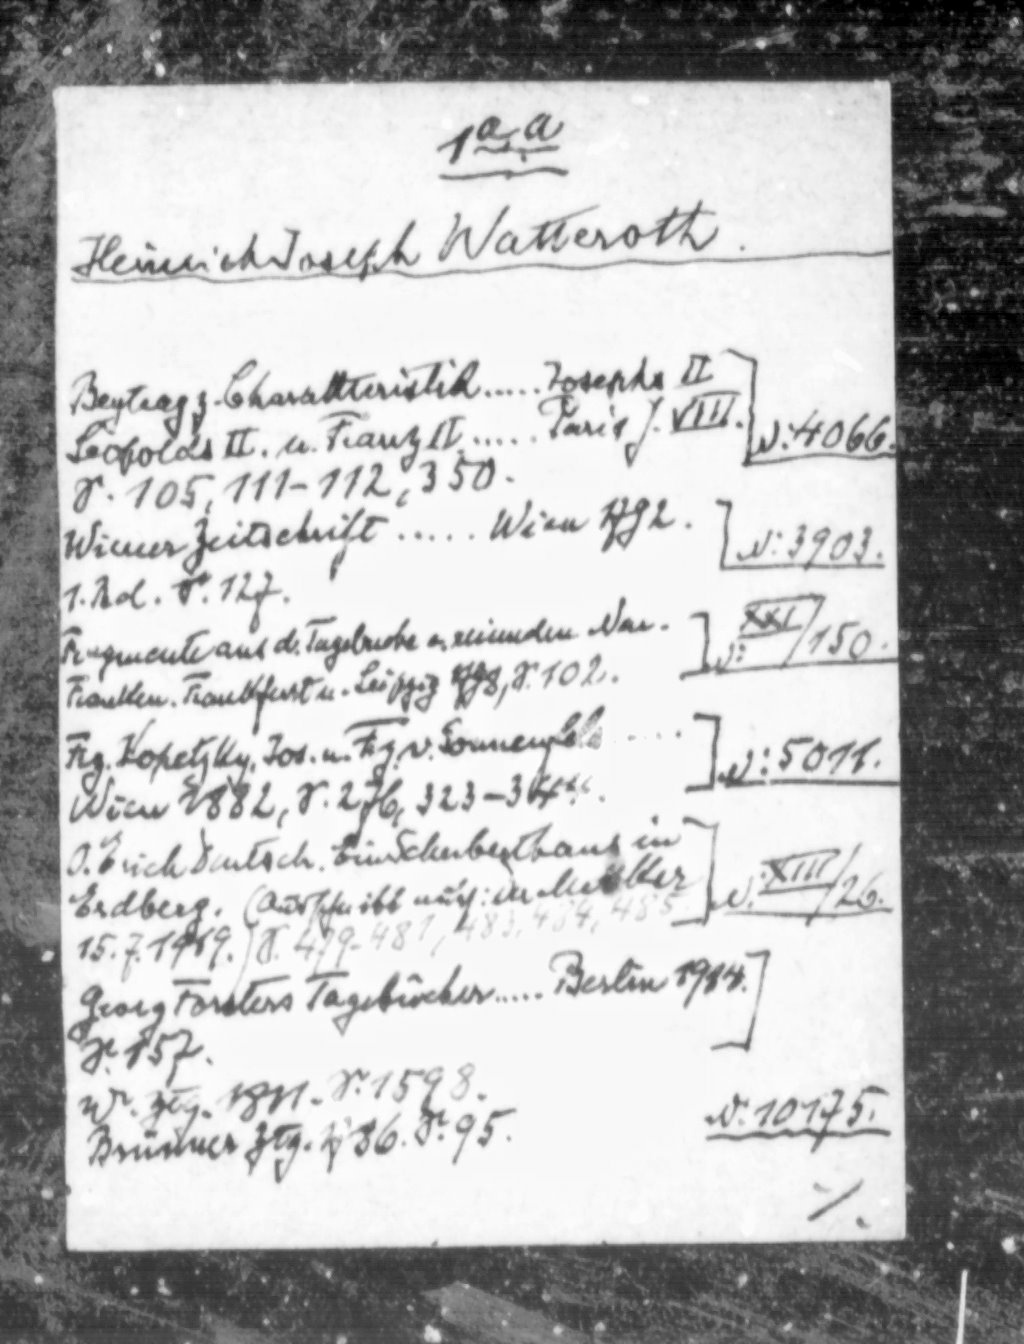 1 a. a
Heinrich Joseph Watteroth.
Beytrag z. Charakteristik ..... Josephs II
Leopolds II. u. Franz II. ..... Paris J. VIII. N: 4066.
S. 105, 111-112, 350.
Wiener Zeitschrift ..... Wien 1792. N: 3903.
1. Bd. S. 127.
Fragmente aus d. Tagebuche e. reisenden Neu- N: XXI/150.
Franken. Frankfurt u. Leipzig 1798, S. 102.
Frz. Kopetzky. Jos. u. Frz. v. Sonnenfels ..... N: 5011.
Wien 1882, S. 276, 323-344.
O. Erich Deutsch. Ein Schuberthaus in
Erdberg. (Ausschnitt aus: der Merker N. XIII/26.
15.7.1919.) S. 479-481, 483, 484, 485
Georg Forsters Tagebücher ..... Berlin 1914.
S. 157.
W. Ztg. 1811. S. 1598.
Brünner Ztg. 786. S. 95. N. 10175.
./.